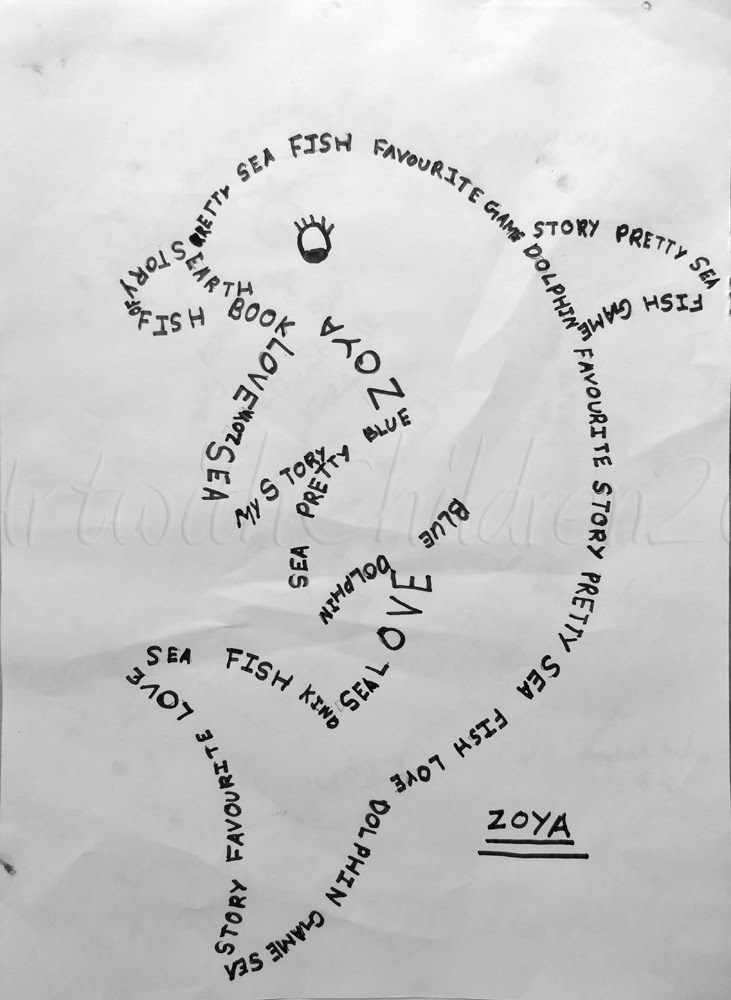 PRETTY SEA FISH FAVOURITE GAME DOLPHIN
STORY PRETTY SEA
FISH GAME
FAVOURITE STORY PRETTY SEA FISH LOVE DOLPHIN GAME SEA
STORY FAVOURITE LOVE
SEA FISH KIND
SEA LOVE
BLUE
DOLPHIN
STORY OF FISH
EARTH
BOOK
LOVE ZOYA SEA
ZOYA
MY STORY
SEA PRETTY BLUE
ZOYA